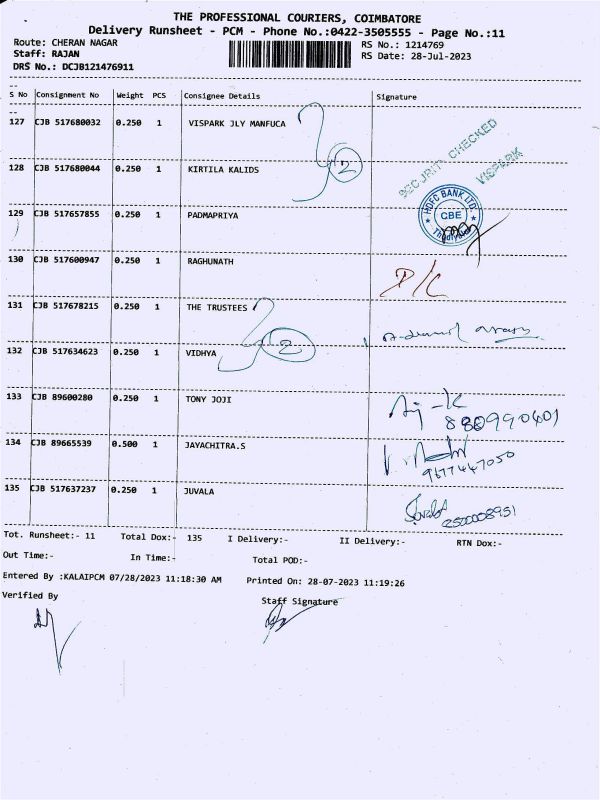 THE PROFESSIONAL COURIERS, COIMBATORE
Delivery Runsheet - PCM - Phone No.:0422-3505555 - Page No.:11
Route: CHERAN NAGAR RS No.: 1214769
Staff: RAJAN RS Date: 28-Jul-2023
DRS No.: DCJB121476911
S No Consignment No Weight PCS Consignee Details Signature
127 CJB 517680032 0.250 1 VISPARK JLY MANFUCA
SECURITY CHECKED
VISPARK
128 CJB 517680044 0.250 1 KIRTILA KALIDS
2
129 CJB 517657855 0.250 1 PADMAPRIYA
HDFC BANK LTD.
CBE
130 CJB 517600947 0.250 1 RAGHUNATH
131 CJB 517678215 0.250 1 THE TRUSTEES
132 CJB 517634623 0.250 1 VIDHYA
2
133 CJB 89600280 0.250 1 TONY JOJI
134 CJB 89665539 0.500 1 JAYACHITRA.S
9677447050
135 CJB 517637237 0.250 1 JUVALA
Tot. Runsheet:- 11 Total Dox:- 135 I Delivery:- II Delivery:- RTN Dox:-
Out Time:- In Time:- Total POD:-
Entered By :KALAIPCM 07/28/2023 11:18:30 AM Printed On: 28-07-2023 11:19:26
Verified By Staff Signature